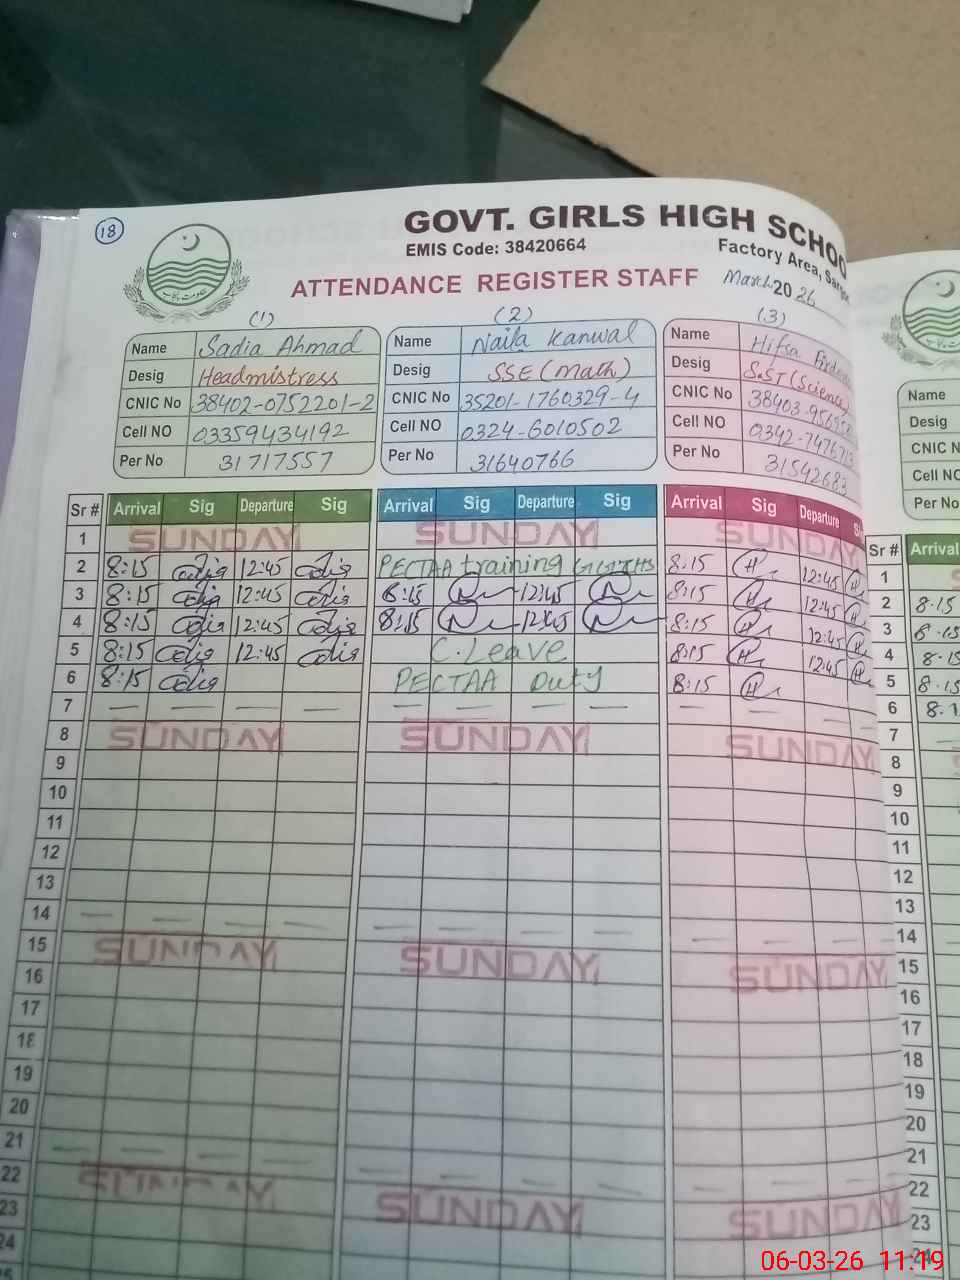 18
GOVT. GIRLS HIGH SCHOO
EMIS Code: 38420664
Factory Area, Sarg
ATTENDANCE REGISTER STAFF
March 2026
(1)
Name Sadia Ahmad
Desig Headmistress
CNIC No 38402-0752201-2
Cell NO 03359434192
Per No 31717557
(2)
Name Naila Kanwal
Desig SSE (Math)
CNIC No 35201-1760329-4
Cell NO 0324-6010502
Per No 31640766
(3)
Name Hifsa
Desig S.ST (Science)
CNIC No 38403-
Cell NO 0342-
Per No 31542683
Name
Desig
CNIC N
Cell NO
Per No
Sr # Arrival Sig Departure Sig Arrival Sig Departure Sig Arrival Sig Departure S
1 SUNDAY SUNDAY SUNDAY
2 8:15 12:45 PECTAA training 8:15 12:45
3 8:15 12:45 8:15 12:45 8:15 12:45
4 8:15 12:45 8:15 12:45 8:15 12:45
5 8:15 12:45 C.Leave 8:15 12:45
6 8:15 PECTAA Duty 8:15
7 — — — — — — — — — — —
8 SUNDAY SUNDAY SUNDAY
9
10
11
12
13
14 — — — — — — — — — — —
15 SUNDAY SUNDAY SUNDAY
16
17
18
19
20
21 — — — — — — — — — — —
22 SUNDAY SUNDAY SUNDAY
23
24
Sr # Arrival
1
2 8.15
3 8.15
4 8.15
5 8.15
6 8.1
7
8
9
10
11
12
13
14
15
16
17
18
19
20
21
22
23
24
06-03-26 11:19